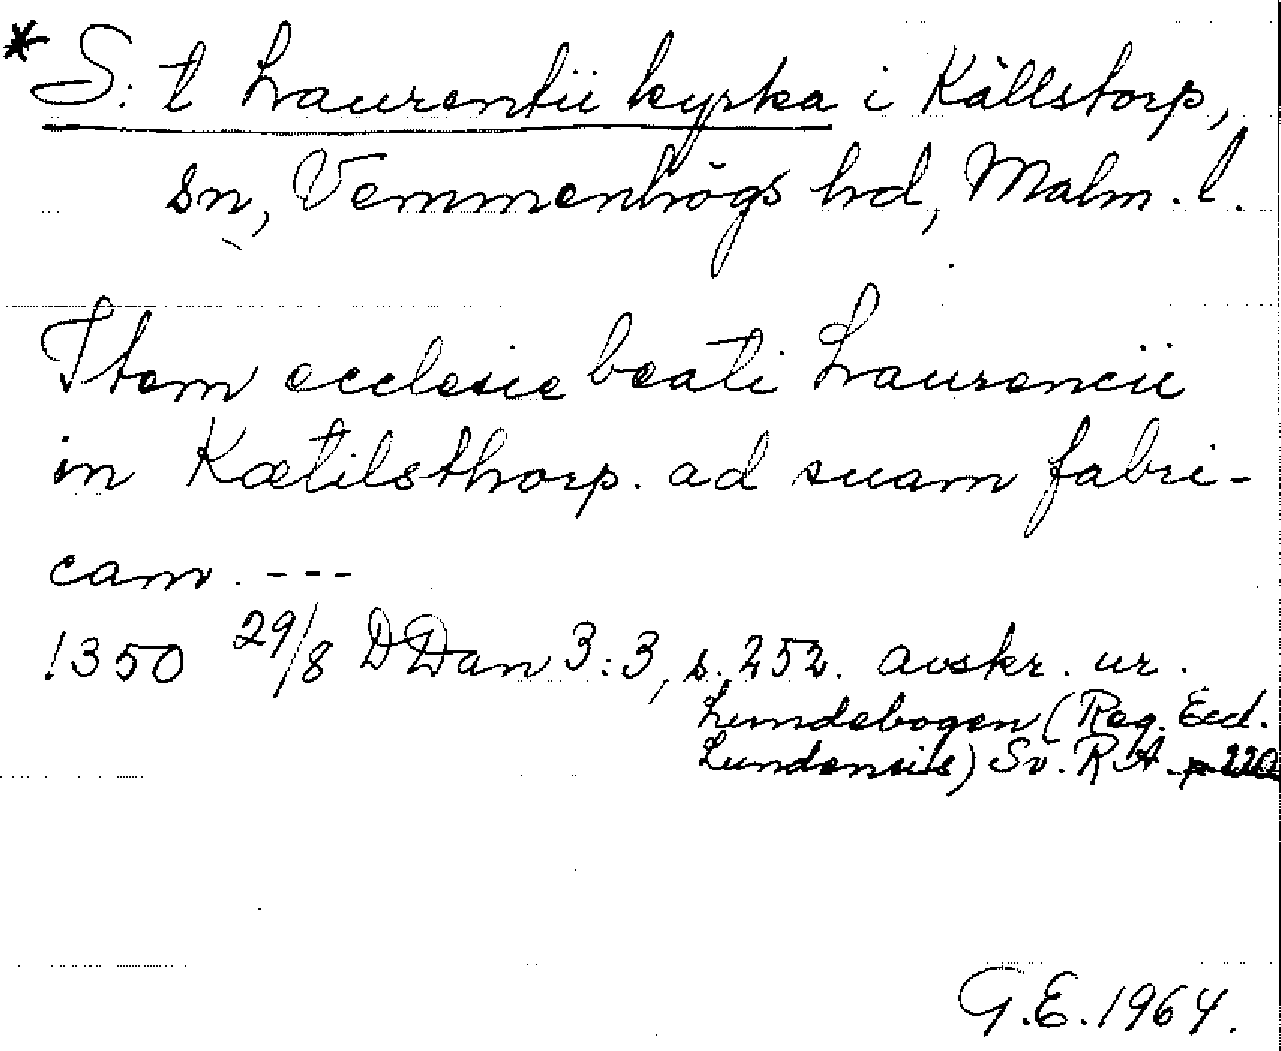 * S:t Laurentii kyrka i Källstorp,
sn, Vemmenhögs hd, Malm. l.
Item ecclesie beati Laurencii
in Kætilsthorp. ad suam fabri-
cam. ---
1350 29/8 DDan 3:3, s. 252. avskr. ur.
Lundebogen (Reg. Eccl.
Lundensis) Sv. R A. p 220
G.E. 1964.